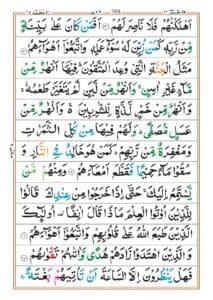 اَهْلَكْنٰهُمْ فَلَا نَاصِرَ لَهُمْ اَفَمَنْ كَانَ عَلٰى بَيِّنَةٍ
مِّنْ رَّبِّهٖ كَمَنْ زُيِّنَ لَهٗ سُوْٓءُ عَمَلِهٖ وَاتَّبَعُوْٓا اَهْوَآءَهُمْ
مَثَلُ الْجَنَّةِ الَّتِيْ وُعِدَ الْمُتَّقُوْنَ فِيْهَآ اَنْهٰرٌ مِّنْ
مَّآءٍ غَيْرِ اٰسِنٍ وَاَنْهٰرٌ مِّنْ لَّبَنٍ لَّمْ يَتَغَيَّرْ طَعْمُهٗ
وَاَنْهٰرٌ مِّنْ خَمْرٍ لَّذَّةٍ لِّلشّٰرِبِيْنَ وَاَنْهٰرٌ مِّنْ
عَسَلٍ مُّصَفًّى وَلَهُمْ فِيْهَا مِنْ كُلِّ الثَّمَرٰتِ
وَمَغْفِرَةٌ مِّنْ رَّبِّهِمْ كَمَنْ هُوَ خَالِدٌ فِي النَّارِ وَ
يَّسْتَمِعُ اِلَيْكَ حَتّٰٓى اِذَا خَرَجُوْا مِنْ عِنْدِكَ قَالُوْا
لِلَّذِيْنَ اُوْتُوا الْعِلْمَ مَاذَا قَالَ اٰنِفًا اُولٰٓئِكَ
الَّذِيْنَ طَبَعَ اللّٰهُ عَلٰى قُلُوْبِهِمْ وَاتَّبَعُوْٓا اَهْوَآءَهُمْ
وَالَّذِيْنَ اهْتَدَوْا زَادَهُمْ هُدًى وَّاٰتٰىهُمْ تَقْوٰىهُمْ
فَهَلْ يَنْظُرُوْنَ اِلَّا السَّاعَةَ اَنْ تَاْتِيَهُمْ بَغْتَةً